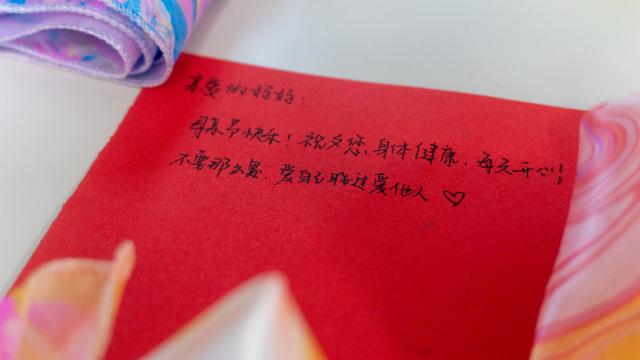 亲爱的妈妈：
母亲节快乐！祝您身体健康，每天开心！
不要那么累，爱自己胜过爱他人 ♡